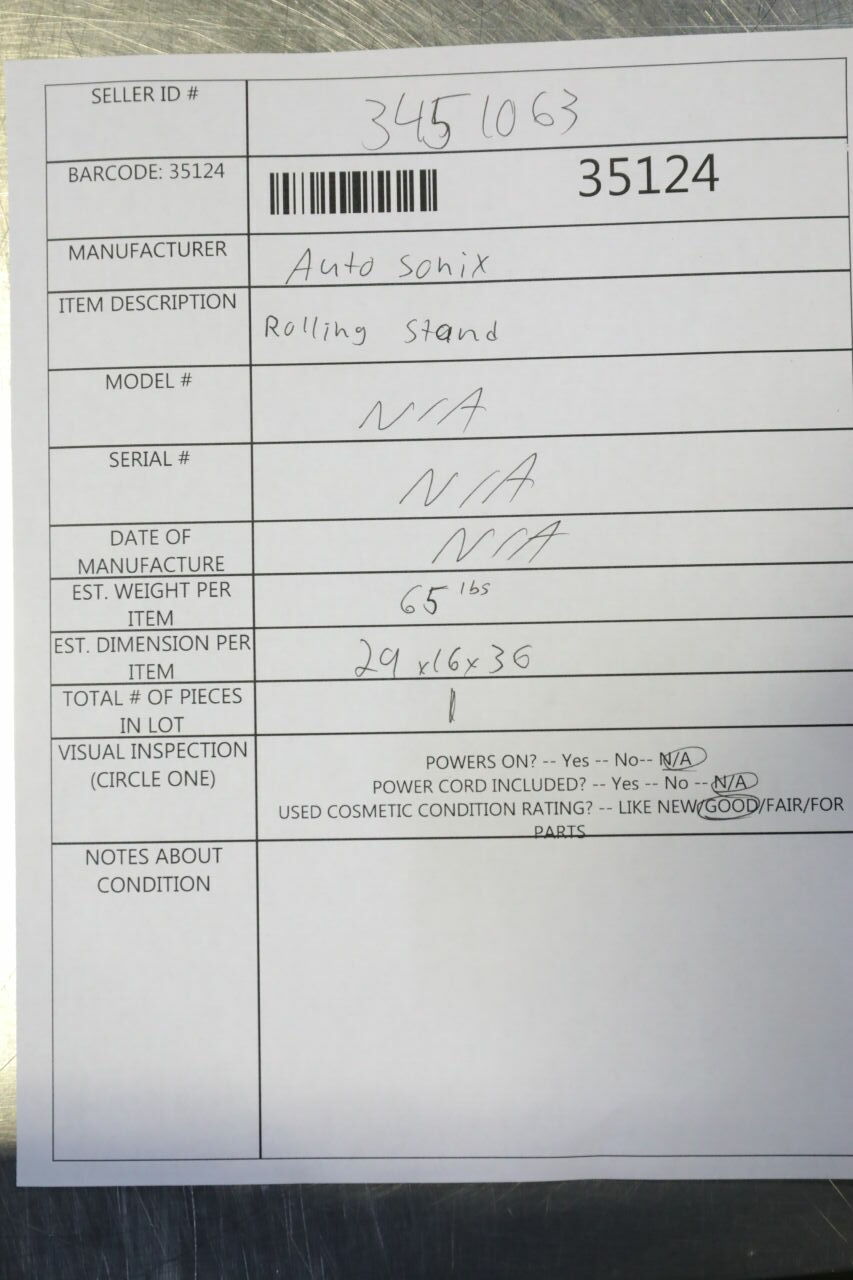 SELLER ID #
3451063
BARCODE: 35124
35124
MANUFACTURER
Auto Sonix
ITEM DESCRIPTION
Rolling Stand
MODEL #
N/A
SERIAL #
N/A
DATE OF
MANUFACTURE
N/A
EST. WEIGHT PER
ITEM
65 lbs
EST. DIMENSION PER
ITEM
29 x16x 36
TOTAL # OF PIECES
IN LOT
1
VISUAL INSPECTION
(CIRCLE ONE)
POWERS ON? -- Yes -- No-- N/A
POWER CORD INCLUDED? -- Yes -- No -- N/A
USED COSMETIC CONDITION RATING? -- LIKE NEW/GOOD/FAIR/FOR
PARTS
NOTES ABOUT
CONDITION